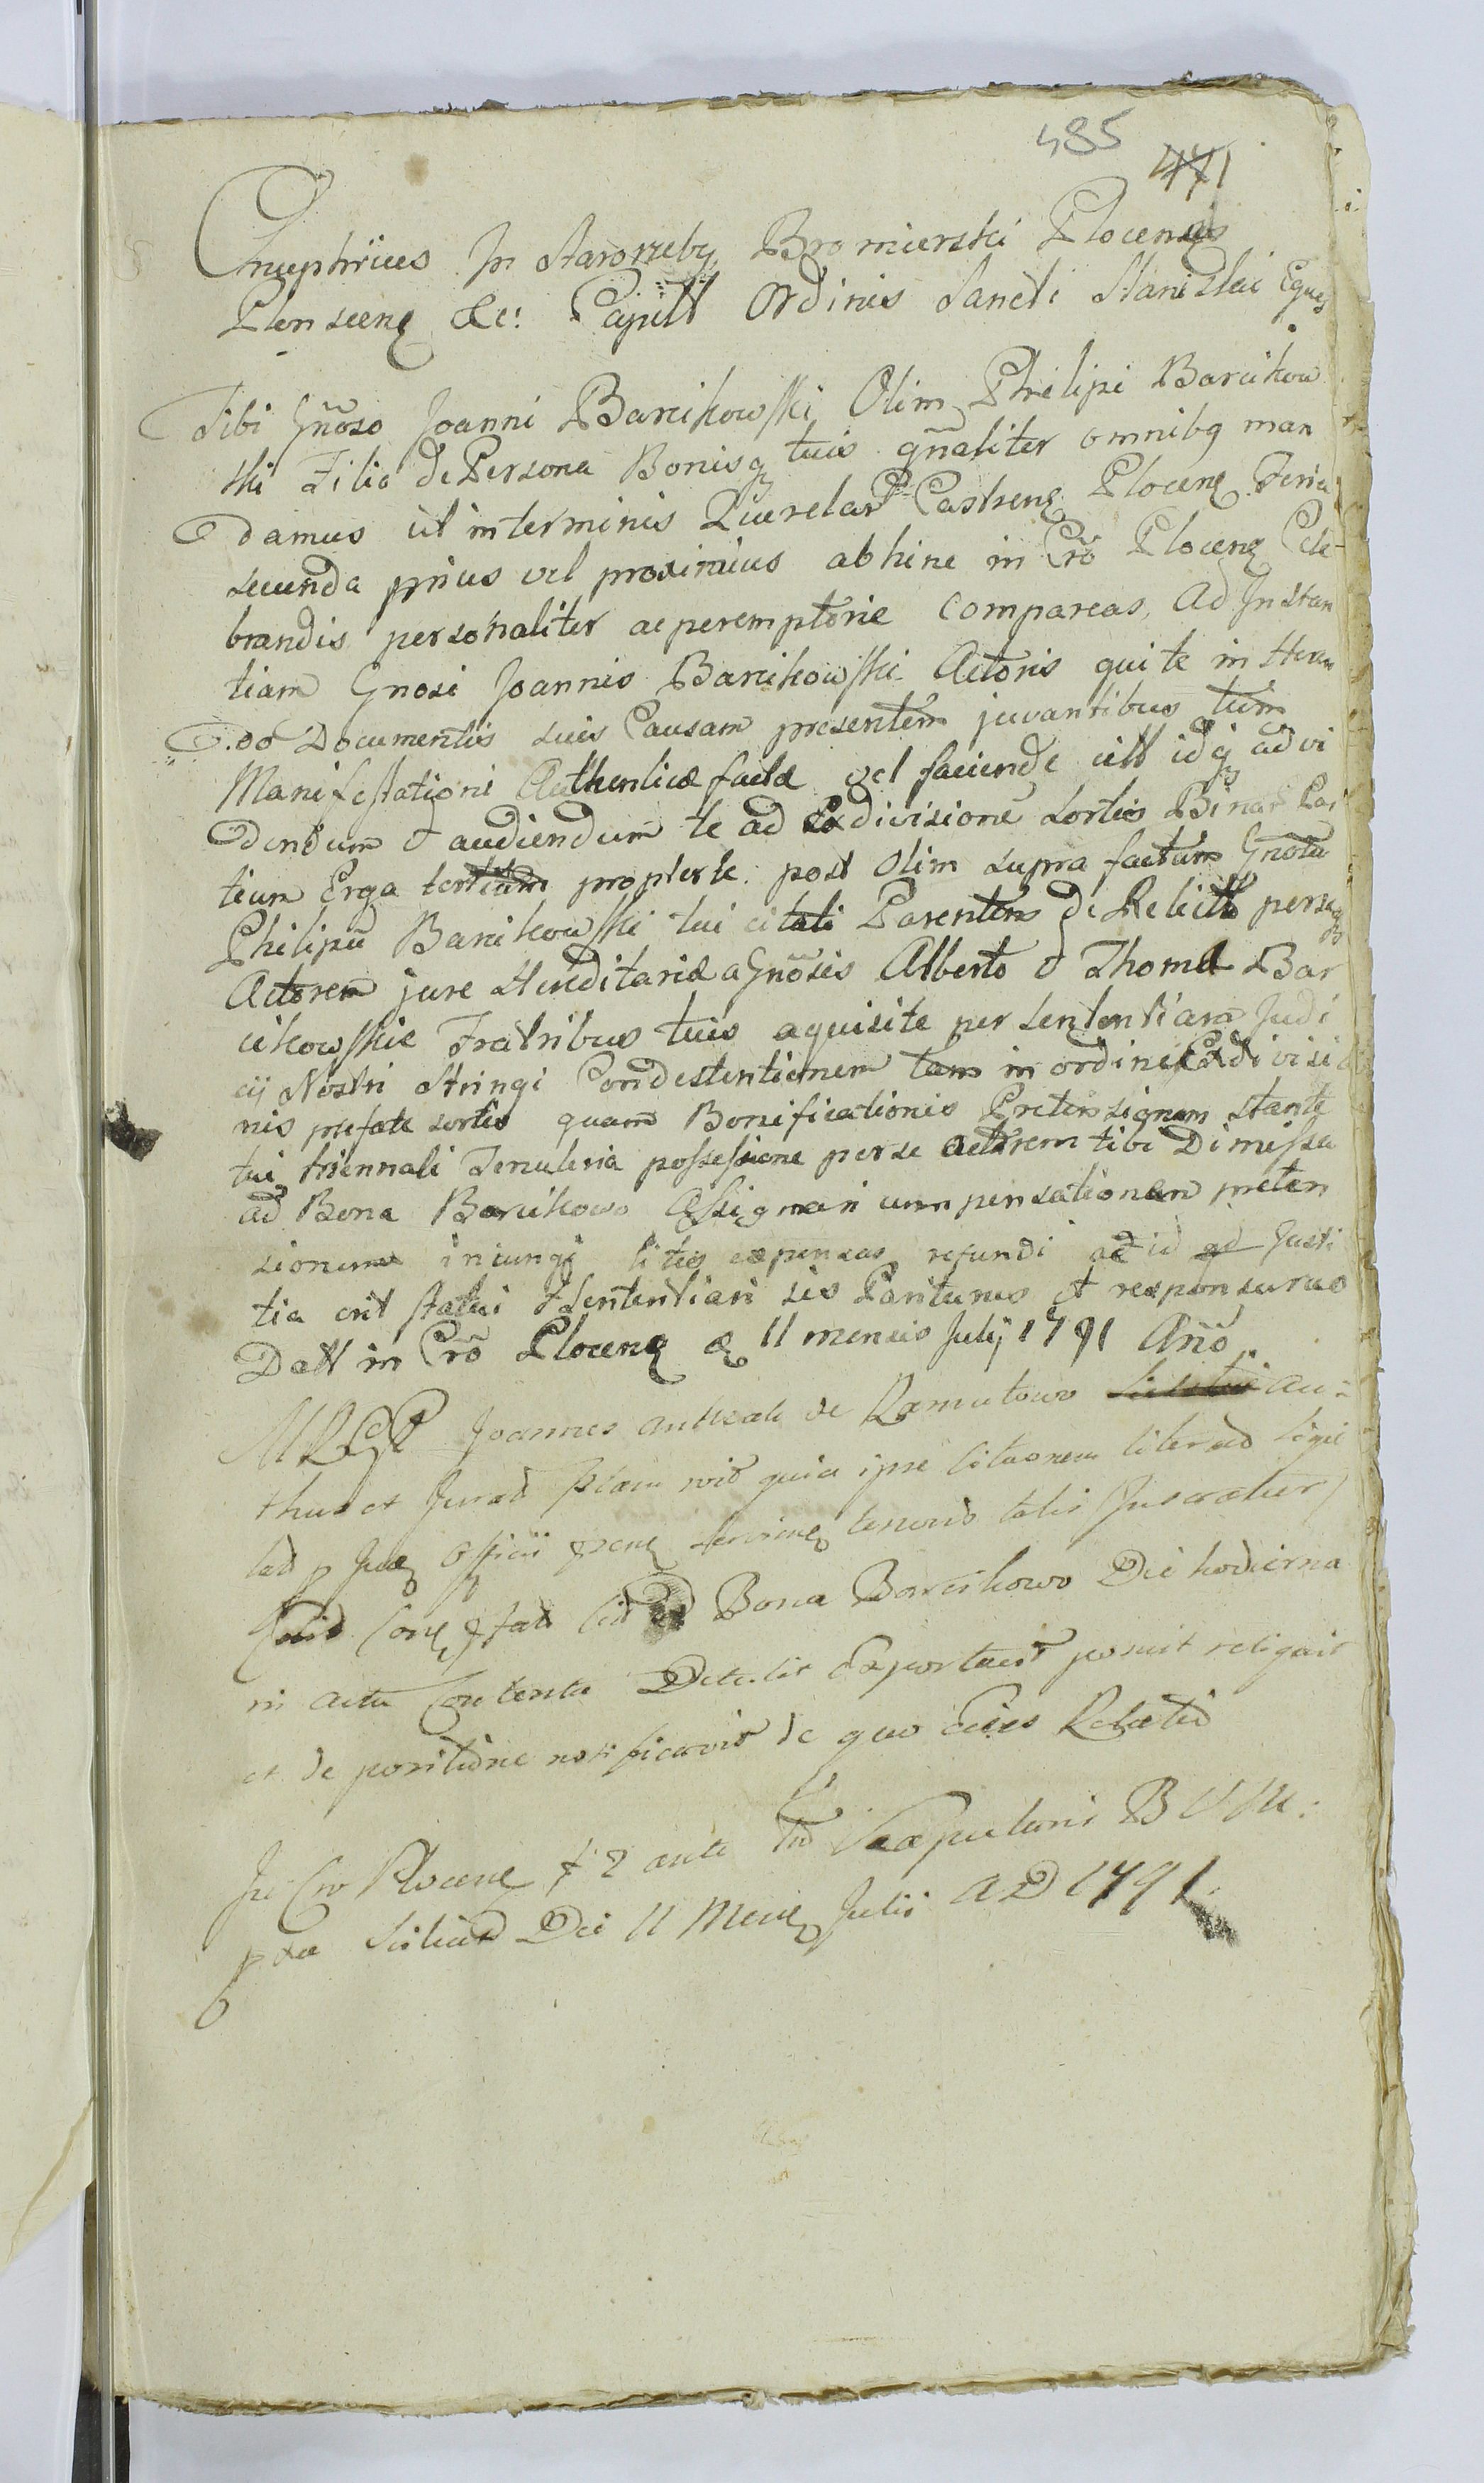 485
471
Onuphrius In Starorzeby Bromierski Plocensis
Plonscenq &c: Capitt Ordinis Sancti Stanislai Eques
Tibi Gñoso Joanni Barcikowski Olim Philipi Barcikow
ski Filio de Persona Bonisq tuis gñaliter omnibq man
damus ut in terminis Querelar Castrenq Plocenq Feria
secunda prius vel proximius abhinc in Crō Plocenq Cele
brandis personaliter ac peremptorie compareas, ad Instan
tiam Gnosi Joannis Barcikowski Actoris qui te in
Documentis suis Causam presentem juvantibus tum
Manifestationi Authenticæ factæ vel faciende citt idq ad vi
dendum & audiendum te ad Exdivisione sortis Binar Par
tium Erga tertiam propter te post olim supra factum
Philipū Barcikowski tui citati Parentem de Relictt per se
Actorem jure Hæreditariæ a Gnōsis Alberto & Thoma Bar
cikowskie Fratribus tuis aquisite per sententiam Judi
cij Nostri Stringi Condestentionem tam in ordine Exdivisio
nis prefate sortis quam Bonificationis Pretensionem stante
tui triennali Tenuteria possessione per se actorem tibi Dimissa
ad Bona Barcikowo Assignari compensationem preten
sionum iniungi litis expensas refundi ac id qd Justi
tia erit statui & Sententiari sis Pariturus et responsurus
Datt in Crō Plocenq 11 mensis Julij 1791 Anō
Joannes de Ramutowo au=
thus et Jurat quia ipse Citaonem literad sigil
lad p Officii tenoris talis Inseratur
Bona Barcikowo Die hodierna
in actu Contenta Detulit Exportavit posuit reliquit
et de positione notificavit de quo Eius Relatio
In Cro Plocenq f 2 ante fd Scapularis B V M:
Die 11 Mensq Julii A D 1791